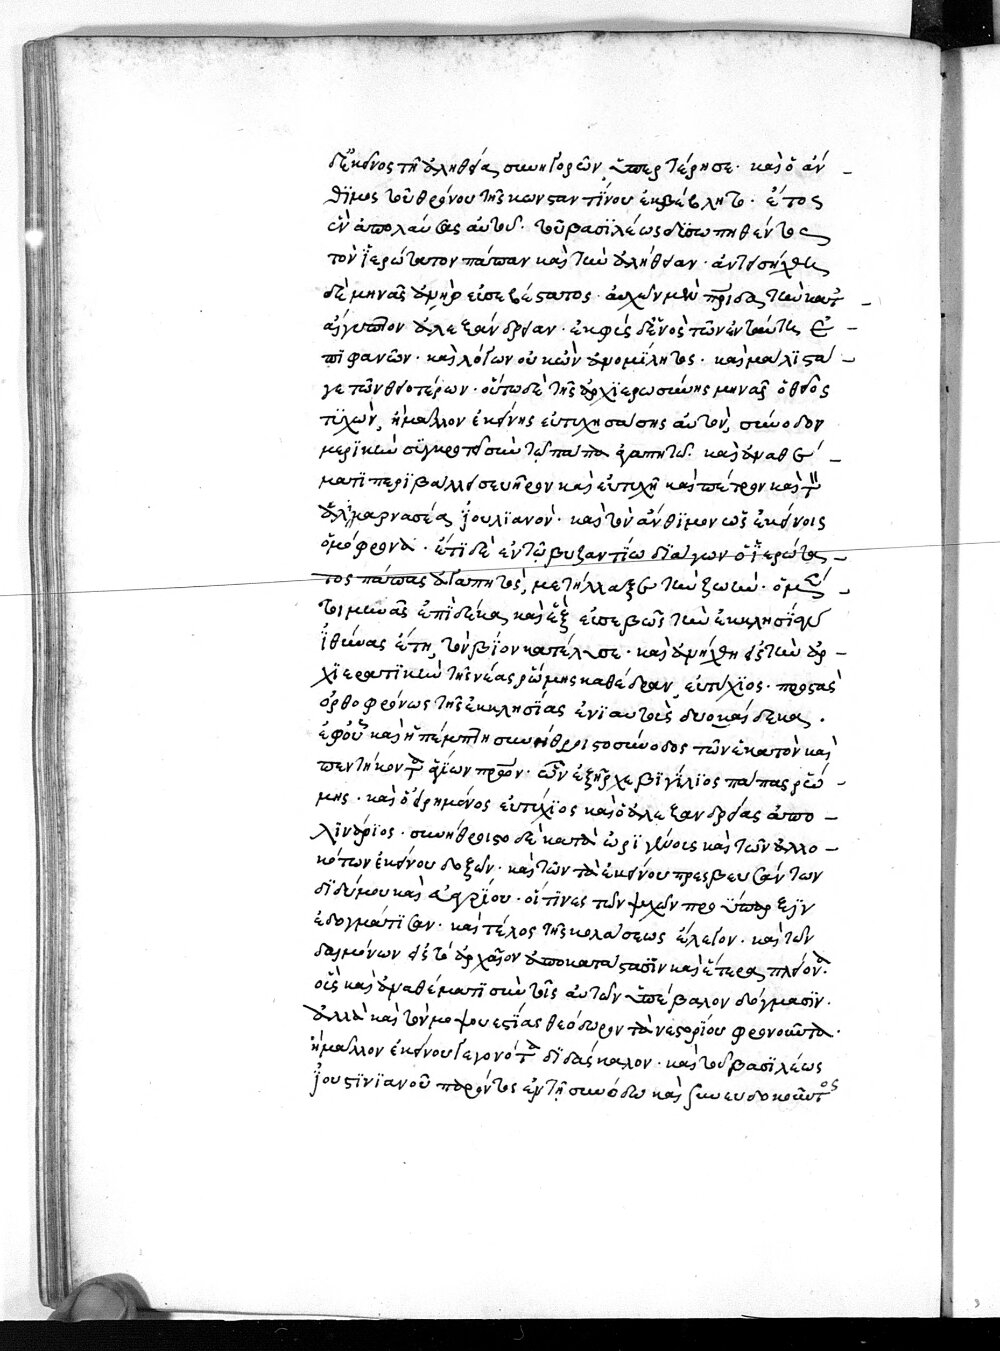 δὲ κεῖνος τῇ ἀληθείᾳ συνηγορῶν, ὑπερτέρησε· καὶ ὁ ἀν
θιμος τοῦ θρόνου τῆς κωνσταντίνου ἐκβέβλητο· ἔτος
ἓν ἀπολαύσας αὐτοῦ· τοῦ βασιλέως δυσωπηθέντος
τὸν ἱερώτατον πάπαν καὶ τὴν ἀλήθειαν· ἀντεισήχθη
δὲ μηνᾶς ἀνὴρ εὐσεβέστατος· αὐχῶν μὲν πρίδα τὴν κατ
αἴγυπτον ἀλεξάνδρειαν· ἐκφὺς δέ τινος τῶν ἐν ταύτῃ ἐ
πιφανῶν· καὶ λόγων οὐκ ὢν ἀνομίλητος· καὶ μάλιστά
γε τῶν θειοτέρων· οὕτω δὲ τῆς ἀρχιερωσύνης μηνᾶς ὁ θεῖος
τυχὼν, ἢ μᾶλλον ἐκείνης εὐτυχησάσης αὐτὸν, σύνοδον
μερικὴν συγκροτεῖ σὺν τῷ πάπᾳ ἀγαπητῷ· καὶ ἀναθέ
ματι περιβάλλει σευῆρον καὶ εὐτυχῆ καὶ πέτρον καὶ τὸν
ἁλικαρνασέα ἰουλιανόν· καὶ τὸν ἄνθιμον ὡς ἐκείνοις
ὁμόφρονα· ἔτι δὲ ἐν τῷ βυζαντίω διάγων ὁ ἱερώτα
τος πάπας ἀγαπητὸς, μετήλλαξε τὴν ζωήν· ὁ μέν
τοι μηνᾶς ἐπὶ δέκα καὶ ἓξ εὐσεβῶς τὴν ἐκκλησίαν
ἰθύνας ἔτη, τὸν βίον κατέλυσε· καὶ ἀνήχθη εἰς τὴν ἀρ
χιερατικὴν τῆς νέας ῥώμης καθέδραν, εὐτύχιος· προστὰς
ὀρθοφρόνως τῆς ἐκκλησίας ἐνιαυτοὺς δυοκαίδεκα.
ἐφ' οὗ καὶ ἡ πέμπτη συνήθροιστο σύνοδος τῶν ἑκατὸν καὶ
πεντήκοντα ἁγίων πρων· ὧν ἐξῆρχε βιγίλιος πάπας ῥώ
μης· καὶ ὁ εἰρημένος εὐτύχιος καὶ ὁ ἀλεξανδρείας ἀπο
λινάριος· συνήθροιστο δὲ κατὰ ὠριγένους καὶ τῶν ἀλλο
κότων ἐκείνου δοξῶν· καὶ τῶν τὰ ἐκείνου πρεσβευσάντων
διδύμου καὶ εὐαγρίου· οἵτινες τῶν ψυχῶν προϋπαρξιν
ἐδογμάτισαν· καὶ τέλος τῆς κολάσεως ἔλεγον· καὶ τῶν
δαιμόνων εἰς τὸ ἀρχαῖον ἀποκατάστασιν καὶ ἕτερα πλείονα·
οὓς καὶ ἀναθέματι σὺν τοῖς αὐτῶν ὑπέβαλον δόγμασιν·
ἀλλὰ καὶ τὸν μοψουεστίας θεόδωρον τὰ νεστορίου φρονοῦντα·
ἢ μᾶλλον ἐκείνου γεγονότα διδάσκαλον· καὶ τοῦ βασιλέως
ἰουστινιανοῦ παρόντος ἐν τῇ συνόδω καὶ συνευδοκοῦντος